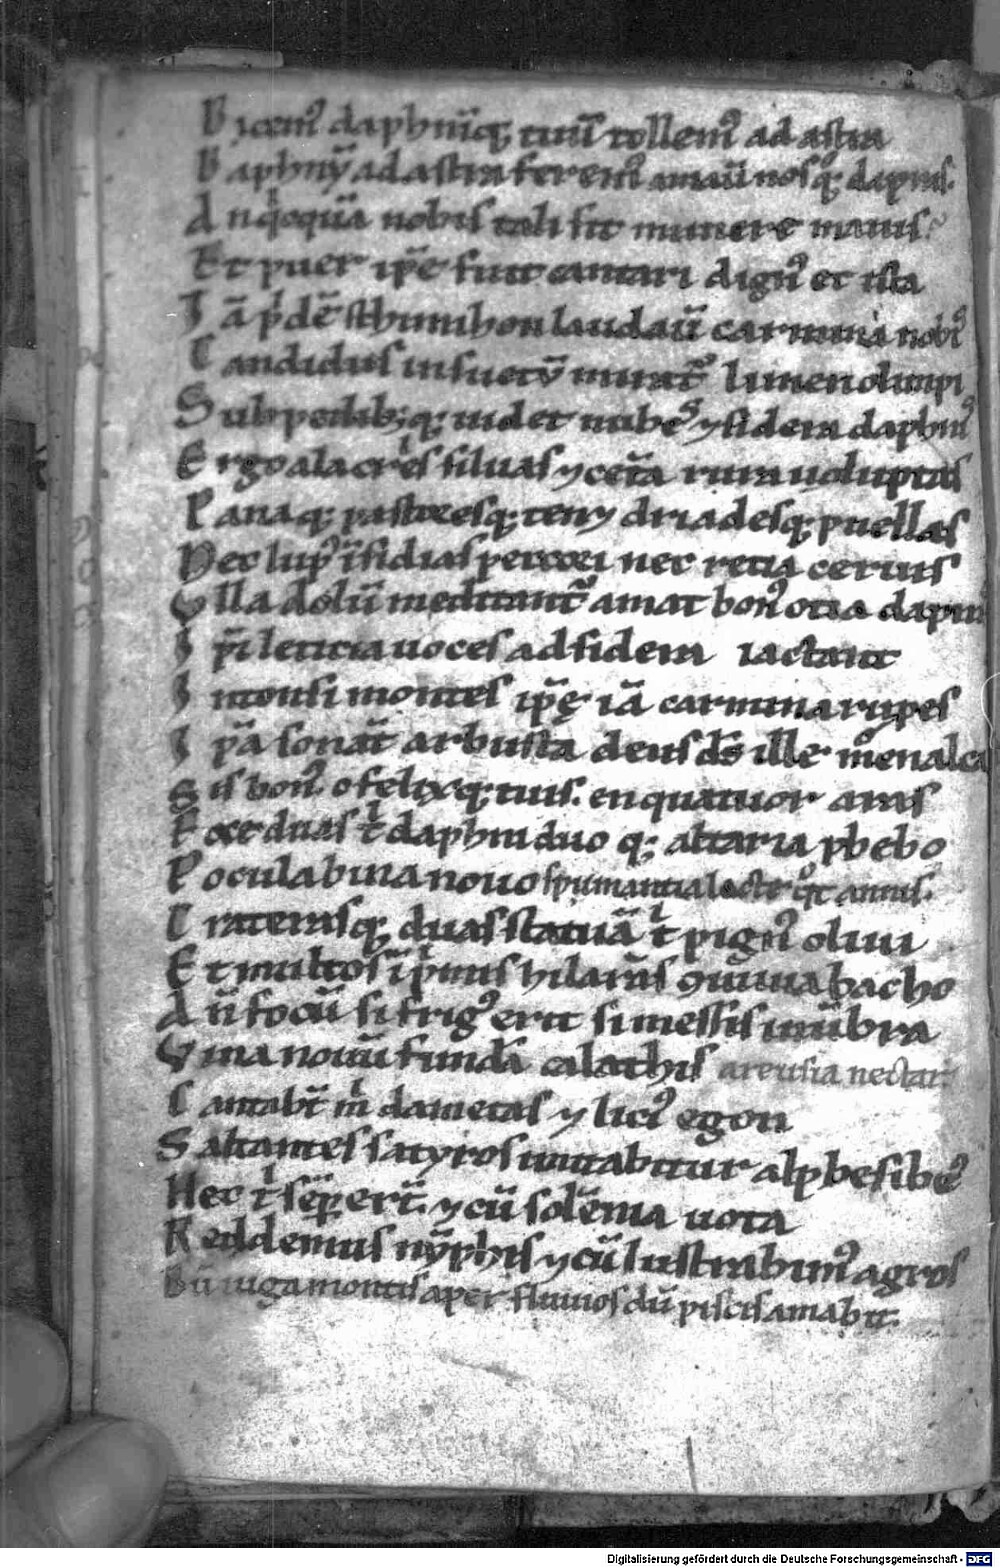 Dicemꝰ daphninq; tuũ tollemꝰ ad astra
Daphnỹ ad astra feremꝰ amauit nos q; dapnis.
An quicquã nobis tali sit munere maius?
Et puer ip̃e fuit cantari dignꝰ et ista
Iã p̃dẽ sthimihon laudauĩ carmina nobis
Candidus insuetũ miratᷣ limen olimpi
Sub pedib; q; uidet nubes ⁊ sidera daphnis
Ergo alacres siluas ⁊ cet̃a rura uoluptas
Panaq; pastoresq; tenꝫ driadesq; puellas
Nec lupꝰ ĩsidias pecori nec retia ceruis
Ulla dolũ meditantᷣ amat bonꝰ otia dapnis
Ip̃i leticia uoces ad sidera iactant
Intonsi montes ip̃ę iã carmina rupes
Ip̃a sonãt arbusta deus ds̃ ille menalca
Sis bonꝰ o felixq; tuis. en quatuor aras
Ecce duas tⁱ daphni duo q; altaria phebo
Pocula bina nouo spumantia lacte qͦt annis.
Craterasq; duas statuã tⁱ pigⁱs oliui
Et multo ĩpⁱmis hilarãs ꝯuiuia bacho
Añ focũ si frigꝰ erit si messis ĩ ũbra
Uina nouũ fundã calathis areusia nectar.
Cantabt̃ mⁱ dametas ⁊ licⁱꝰ egon
Saltantes satyros imitabitur alphesibeꝰ
Hec tⁱ sẽp̲ ert̃. ⁊ cũ solẽnia uota
Reddemus nỹphis ⁊ cũ lustrabimꝰ agros
Dũ iuga montis aper fluuios dũ piscis amabit.
Digitalisierung gefördert durch die Deutsche Forschungsgemeinschaft - DFG